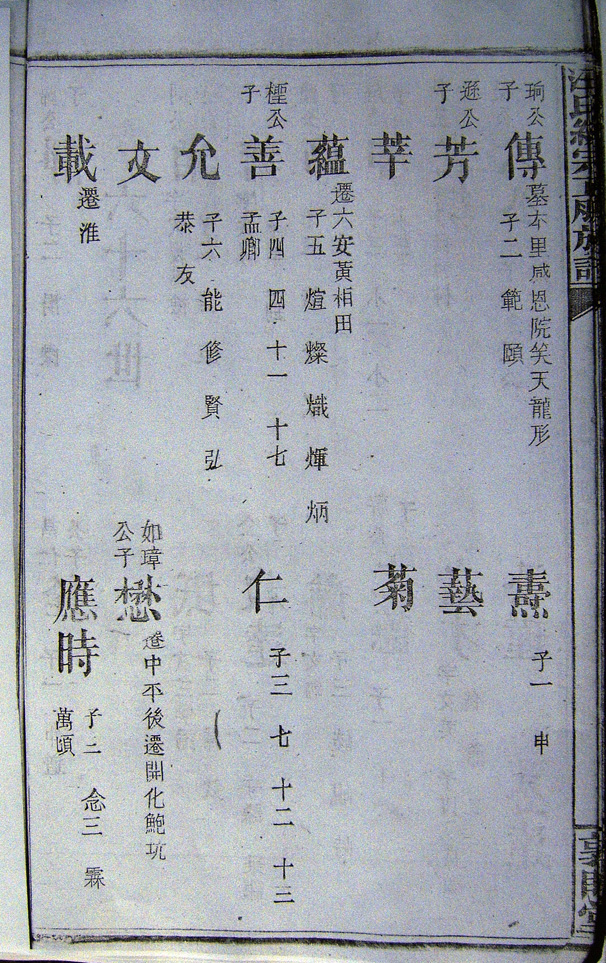 珦公子 傳 墓本里感恩院笑天龍形 子二 範 頤
燾 子一 申
遜公子 芳
藝
莘
菊
蘊 遷六安黃相田 子五 煊 燦 熾 煇 炳
檉公子 善 子四 四 十一 十七 孟卿
仁 子三 七 十二 十三
允 子六 能 修 賢 弘 恭 友
文
如璋公子 懋 遷中平後遷開化鮑坑
載 遷淮
應時 子二 念三 霖 萬頃